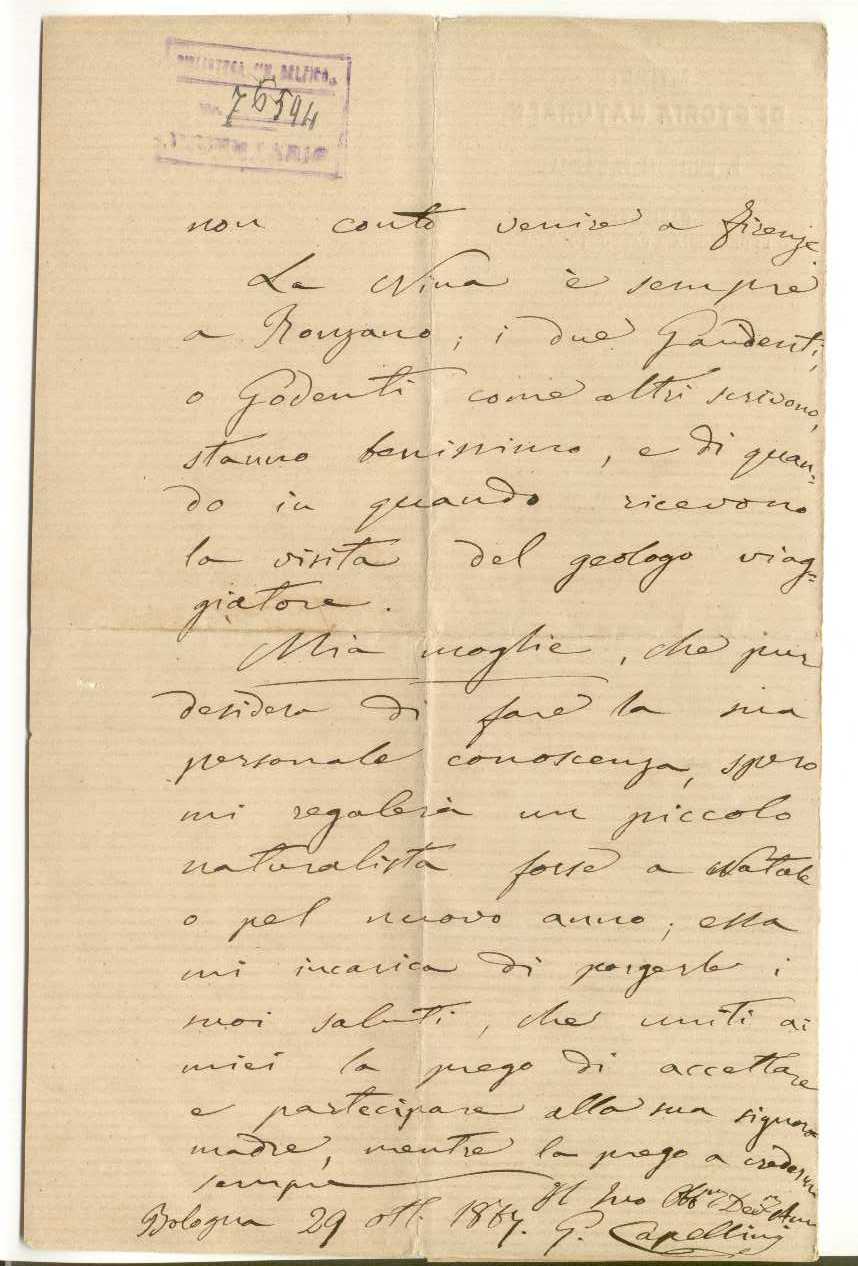 BIBLIOTECA CIV. DELFICO
76594
non conto venire a Firenze.
La Nina è sempre
a Ronzano; i due Gaudenti,
o Godenti come altri scrivono,
stanno benissimo, e di quan=
do in quando ricevono
la visita del geologo viag=
giatore.
Mia moglie, che pur
desidera di fare la sua
personale conoscenza, spero
mi regalerà un piccolo
naturalista forse a Natale
o pel nuovo anno; essa
mi incarica di porgerle i
suoi saluti, che uniti ai
miei la prego di accettare
e partecipare alla sua signora
madre, mentre la prego a credermi
sempre
Il Suo Obb.mo Dev.mo Am
Bologna 29 ott. 1867. G. Capellini